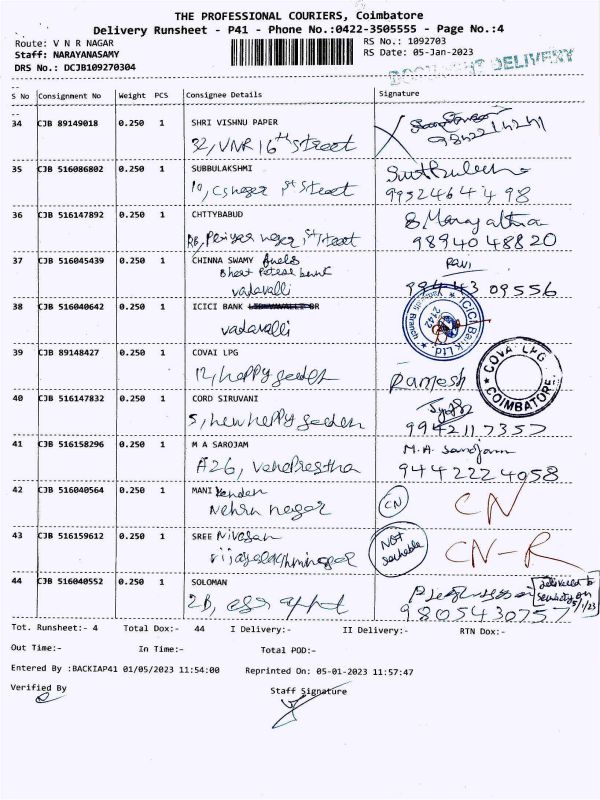 THE PROFESSIONAL COURIERS, Coimbatore
Delivery Runsheet - P41 - Phone No.:0422-3505555 - Page No.:4
Route: V N R NAGAR
RS No.: 1092703
Staff: NARAYANASAMY
RS Date: 05-Jan-2023
DRS No.: DCJB109270304
DOCUMENT DELIVERY
S No Consignment No Weight PCS Consignee Details Signature
34 CJB 89149018 0.250 1 SHRI VISHNU PAPER
32, VNR 16th Street
35 CJB 516086802 0.250 1 SUBBULAKSHMI
10, CS nagar 1st Street
9952464498
36 CJB 516147892 0.250 1 CHTTYBABUD
Periyar nagar 1st Street
9894048820
37 CJB 516045439 0.250 1 CHINNA SWAMY fuels
Ravi
Bharat bunk
vadavalli
99443 09556
38 CJB 516040642 0.250 1 ICICI BANK
vadavalli
ICICI Bank Ltd. Vadavalli Branch
2142
39 CJB 89148427 0.250 1 COVAI LPG
12, happy garden
Ramesh
COVAI LPG COIMBATORE
40 CJB 516147832 0.250 1 CORD SIRUVANI
5, new happy garden
9942117357
41 CJB 516158296 0.250 1 M A SAROJAM
M.A. Sarojam
A26, vanaprastha
9442224058
42 CJB 516040564 0.250 1 MANI kandan
Nehru nagar
CN
CN
43 CJB 516159612 0.250 1 SREE Nivasan
Not
CN-R
44 CJB 516040552 0.250 1 SOLOMAN
2B,
Delivered to
Security on
5/1/23
9805430757
Tot. Runsheet:- 4 Total Dox:- 44 I Delivery:- II Delivery:- RTN Dox:-
Out Time:- In Time:- Total POD:-
Entered By :BACKIAP41 01/05/2023 11:54:00 Reprinted On: 05-01-2023 11:57:47
Verified By
Staff Signature